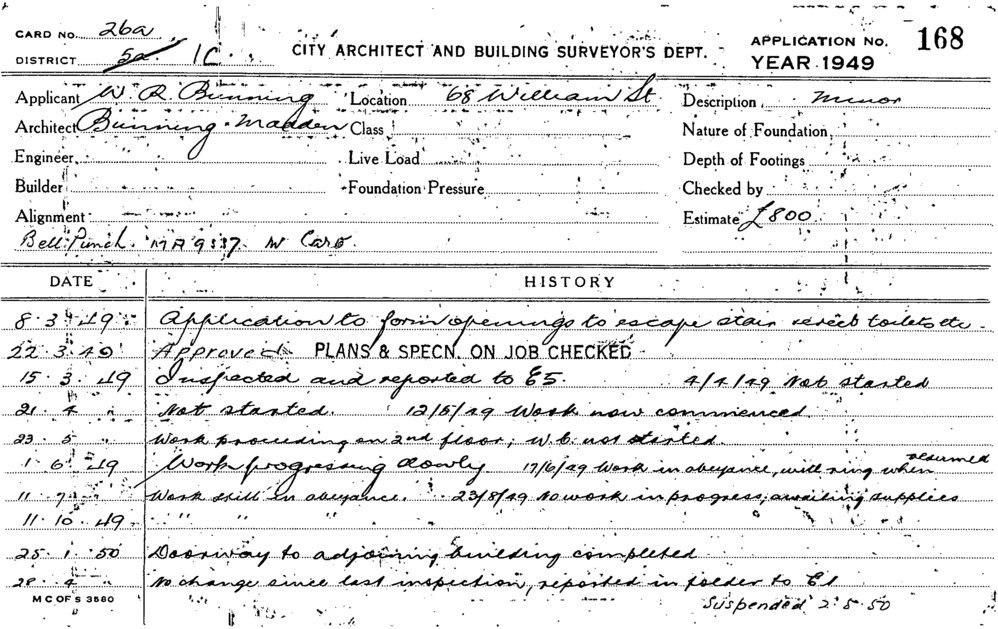 CARD No. 26a
DISTRICT 5a 1C.
CITY ARCHITECT AND BUILDING SURVEYOR'S DEPT.
APPLICATION No. 168
YEAR 1949
Applicant W R Bunning Location 68 William St Description Minor
Architect Bunning & Madden Class Nature of Foundation
Engineer Live Load Depth of Footings
Builder Foundation Pressure Checked by
Alignment Estimate £800
Bell Punch. MA 9337. Mr
DATE HISTORY
8·3·49 Application to form openings to escape stair toilets etc
22·3·49 Approved PLANS & SPECN. ON JOB CHECKED
15·3·49 Inspected and reported to E5. 4/4/49 Not started
21·4 " Not started. 12/5/49 Work now commenced
23·5 " Work proceeding on 2nd floor; W.C. not started.
1·6·49 Work progressing slowly 17/6/49 Work in abeyance, will ring when resumed
11·7 " Work still in abeyance. 23/8/49 No work in progress, awaiting supplies
11·10·49 " " " "
25·1·50 Doorway to adjoining building completed
28·4 No change since last inspection, reported in folder to E1
M C OF S 3580
Suspended 2·5·50